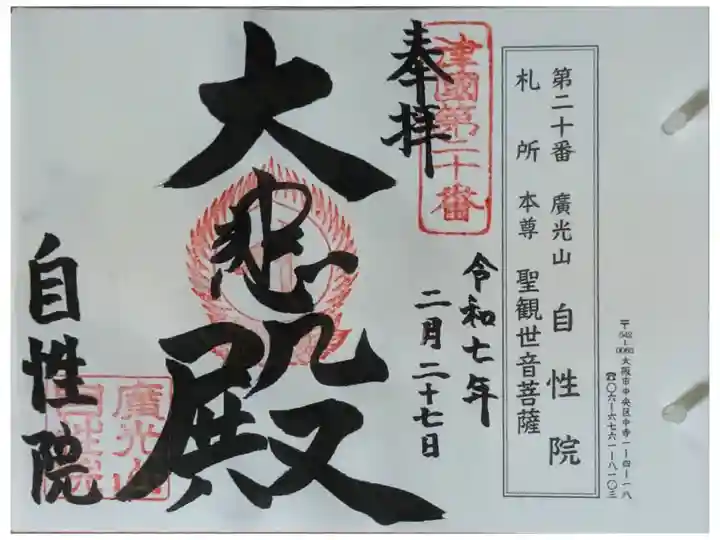 〒542-0065 大阪市中央区中寺一-四-一八
☎〇六-六七六一-八一〇三
第二十番 廣光山 自性院
札所 本尊 聖観世音菩薩
津國第二十番
奉拝
令和七年
二月二十七日
大悲殿
廣光山
自性院
自性院